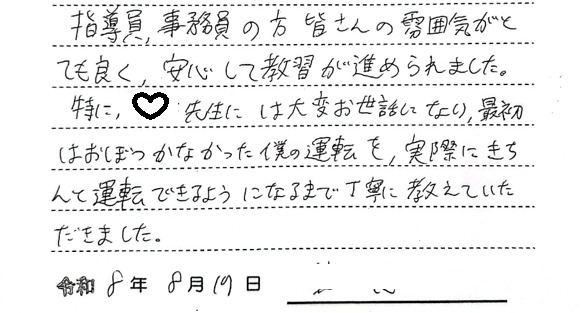 指導員、事務員の方 皆さんの雰囲気がと
ても良く、安心して教習が進められました。
特に、♡先生には大変お世話になり、最初
はおぼつかなかった僕の運転を、実際にきち
んと運転できるようになるまで丁寧に教えていた
だきました。
令和8年8月19日